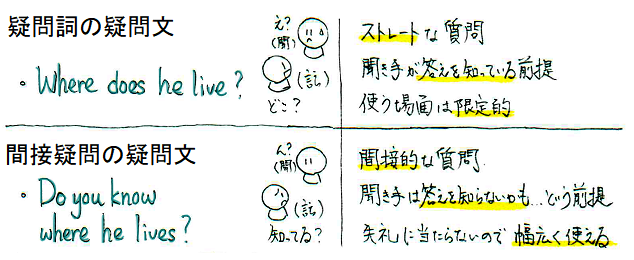 疑問詞の疑問文
・Where does he live?
え?
(聞)
(話)
どこ?
ストレートな質問
聞き手が答えを知っている前提
使う場面は限定的
間接疑問の疑問文
・Do you know
where he lives?
ん?
(聞)
(話)
知ってる?
間接的な質問.
聞き手は答えを知らないかも…という前提
失礼に当たらないので幅広く使える